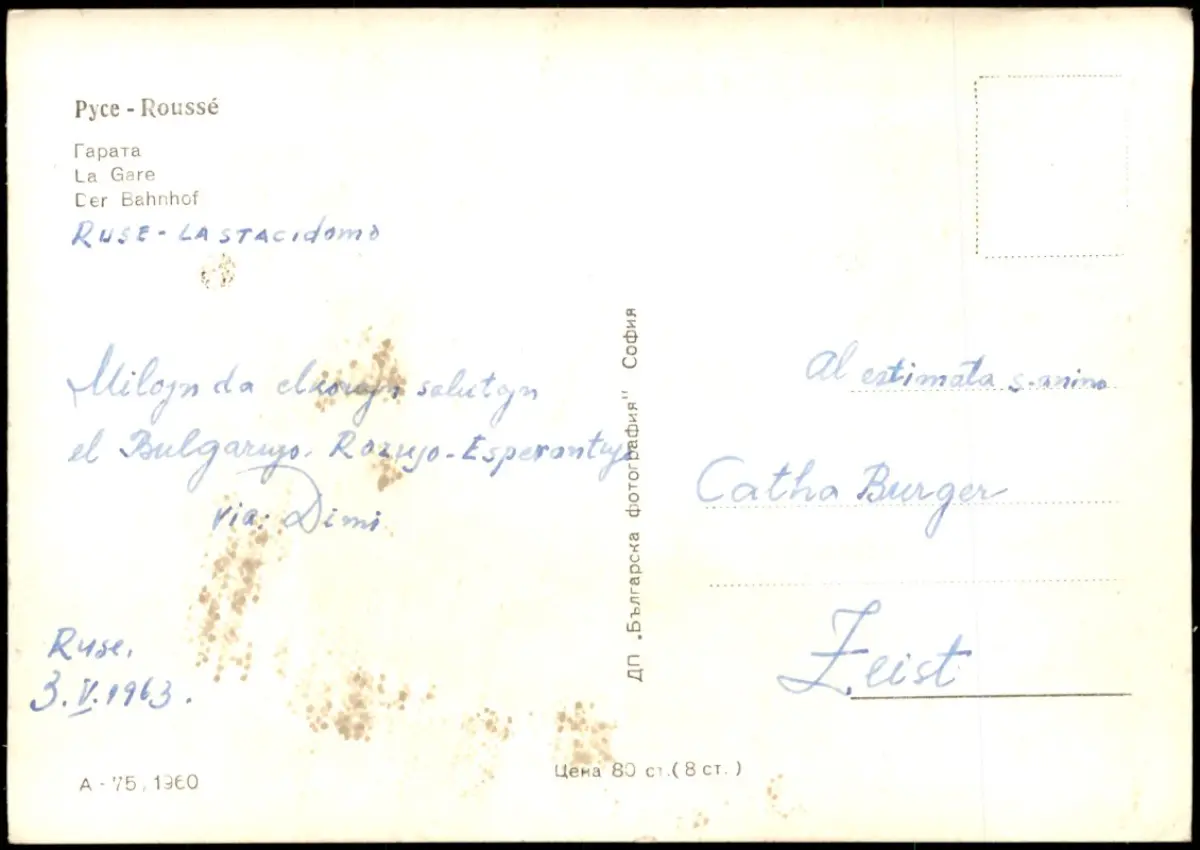 Русе - Roussé
Гарата
La Gare
Der Bahnhof
RUSE - LA STACIDOMO
Milojn da elkorajn salutojn
el Bulgarujo. Rozujo-Esperantujo
via: Dimi
Ruse,
3.V.1963.
А - 75, 1960
Цена 80 ст. (8 ст.)
ДП „Българска фотография" София
Al estimata s-anino
Catha Burger
Zeist